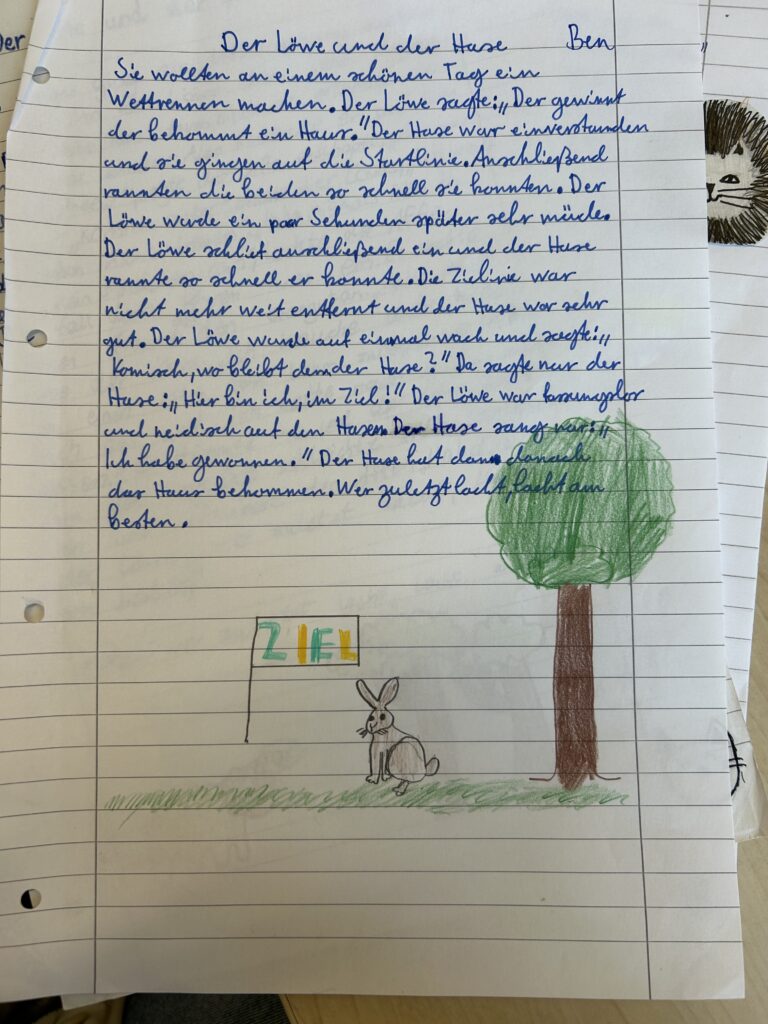 Der Löwe und der Hase Ben
Sie wollten an einem schönen Tag ein
Wettrennen machen. Der Löwe sagte: „Der gewinnt
der bekommt ein Haus." Der Hase war einverstanden
und sie gingen auf die Startlinie. Anschließend
rannten die beiden so schnell sie konnten. Der
Löwe wurde ein paar Sekunden später sehr müde.
Der Löwe schlief anschließend ein und der Hase
rannte so schnell er konnte. Die Ziellinie war
nicht mehr weit entfernt und der Hase war sehr
gut. Der Löwe wurde auf einmal wach und sagte: „
Komisch, wo bleibt denn der Hase?" Da sagte nur der
Hase: „Hier bin ich, im Ziel!" Der Löwe war fassungslos
und neidisch auf den Hasen. Der Hase sang vor: „
Ich habe gewonnen." Der Hase hat dann danach
das Haus bekommen. Wer zuletzt lacht, lacht am
besten.
ZIEL